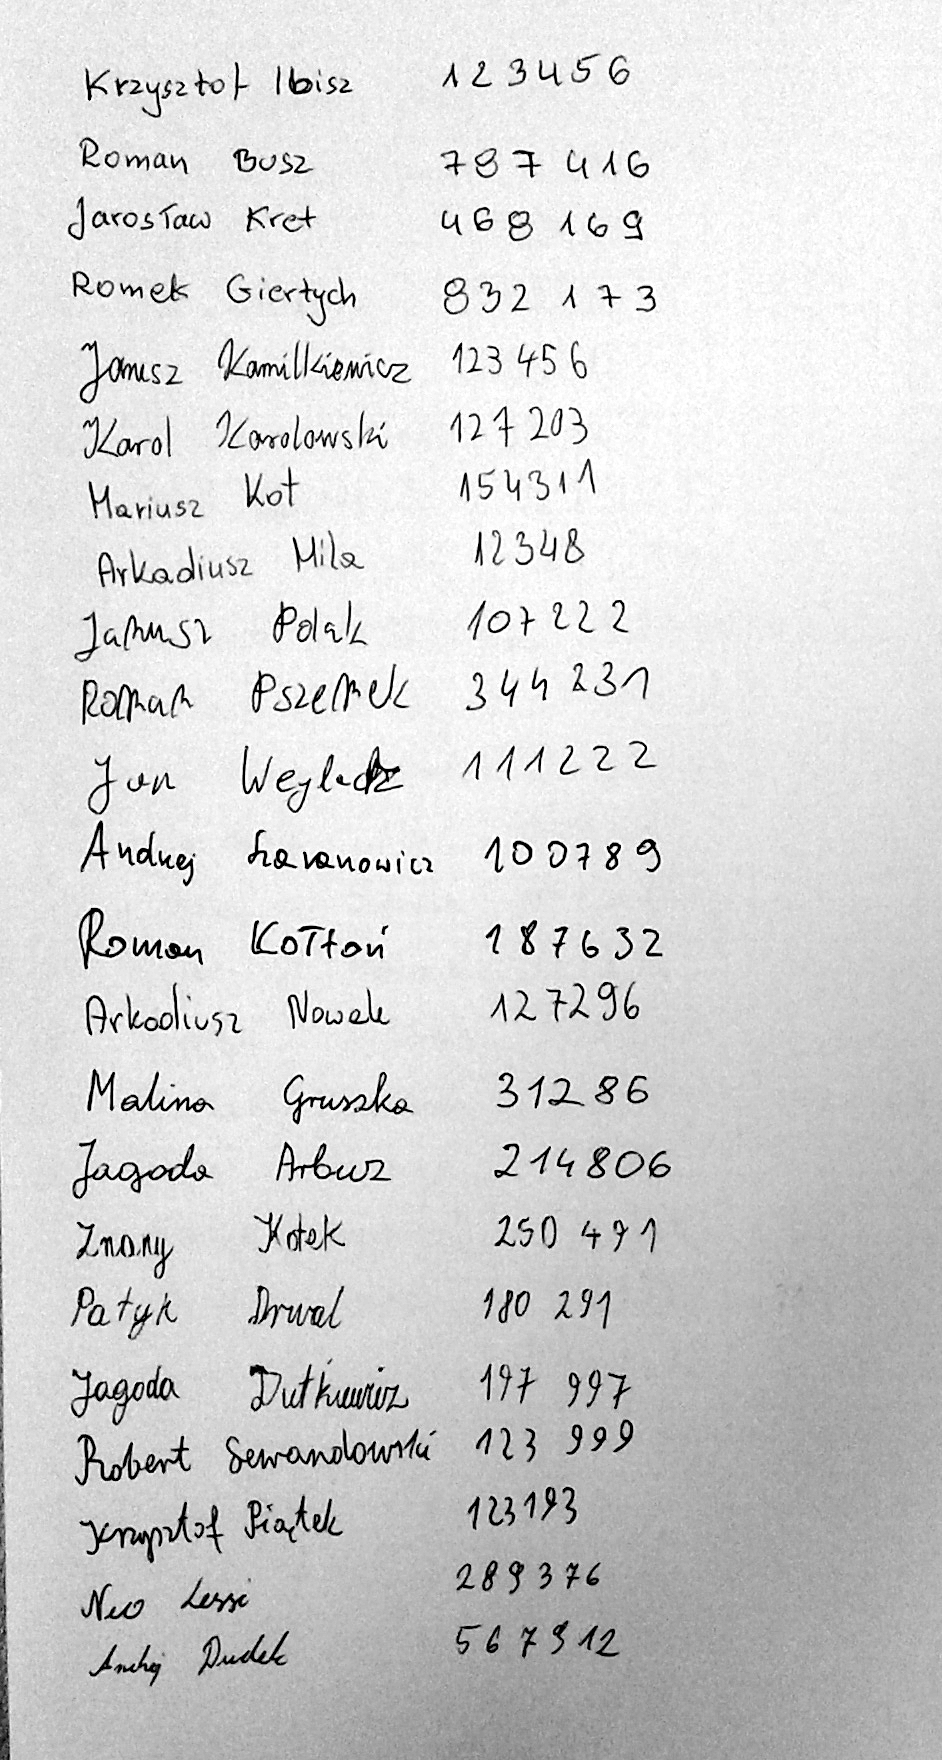 Krzysztof Ibisz 123456
Roman Busz 787 416
Jarosław Kret 468 169
Romek Giertych 832 173
Janusz Kamilkiewicz 123 456
Karol Karolowski 127 203
Mariusz Kot 154311
Arkadiusz Mila 12348
Janusz Polak 107222
Roman Pszemek 344 231
Jan 111222
Andrzej Szaranowicz 100789
Roman Kołtoń 187632
Arkadiusz Nowak 127296
Malina Gruszka 31286
Jagoda Arbuz 214806
Znany Kotek 250 491
Patyk Drwal 180 291
Jagoda Dutkiewicz 197 997
Robert Lewandowski 123 999
Krzysztof Piątek 123193
Neo Lessi 289376
Dudek 567912